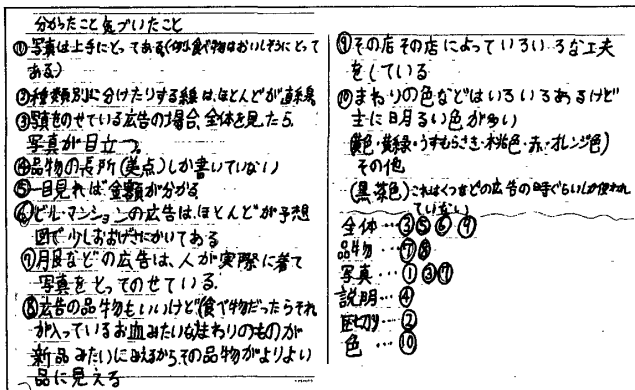 分かったこと気づいたこと
①写真は上手にとってある(例食べ物はおいしそうにとって
ある)
②種類別に分けたりする線は、ほとんどが直線
③写真をのせている広告の場合、全体を見たら、
写真が目立つ。
④品物の長所(美点)しか書いていない
⑤一目見れば金額が分かる
⑥ビル・マンションの広告は、ほとんどが予想
図で少しおおげさにかいてある
⑦月服などの広告は、人が実際に着て
写真をとってのせている。
⑧広告の品物もいいけど(食べ物だったらそれ
が入っているお皿みたいな)まわりのものが
新品みたいに見えるからその品物がよりよい
品に見える
⑨その店その店によっていろいろな工夫
をしている
⑩まわりの色などはいろいろあるけど
主に明るい色が多い
(黄色・黄緑・うすむらさき・桃色・赤・オレンジ色)
その他
(黒、茶色)これはくつなどの広告の時ぐらいしか使われ
ていない
全体…③⑤⑥⑨
品物…⑦⑧
写真…①③⑦
説明…④
区切り…②
色…⑩